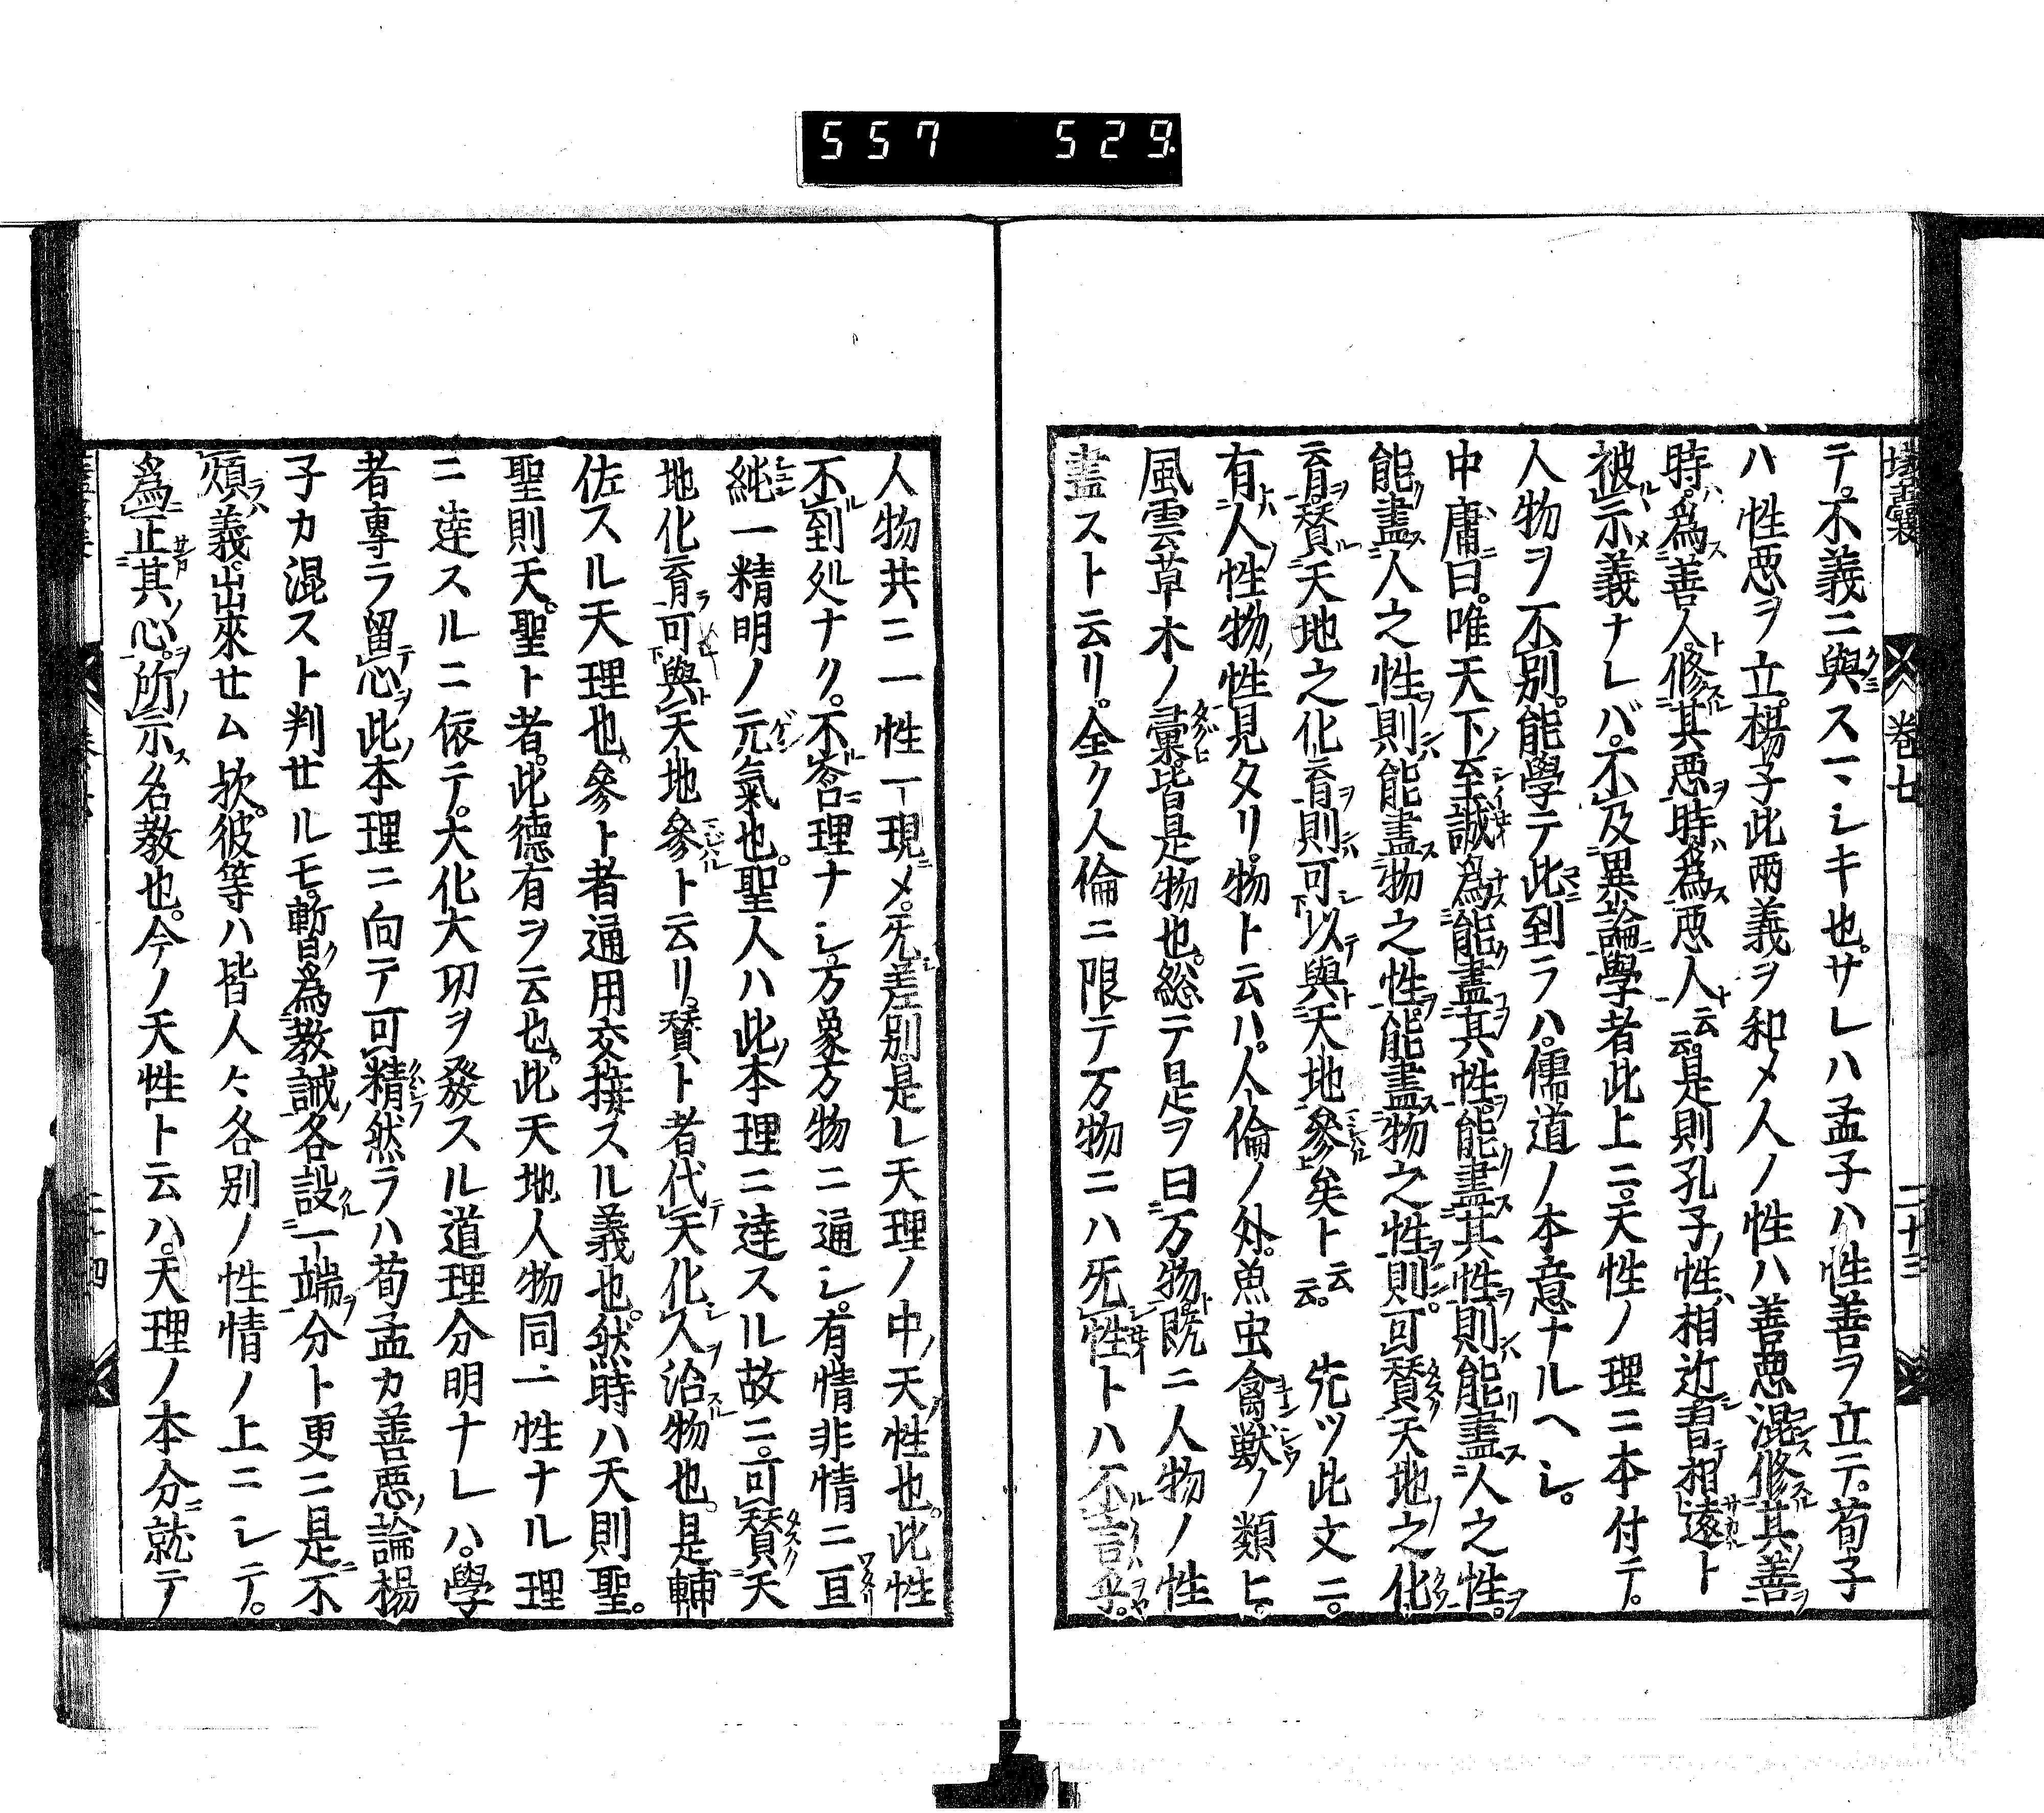 557 529
壒囊 巻七 二十三
テ。不義ニ與スヘシキ也。サレハ孟子ハ性善ヲ立テ。荀子
ハ性悪ヲ立。楊子此両義ヲ和メ人ノ性ハ善悪混修其善
時。為善人。修其悪時為悪人云云。是則孔子ノ性相近習相遠ト
被示義ナレバ。不及異論。學者此上ニ。天性ノ理ニ本付テ。
人物ヲ不別。能學テ此到ラハ。儒道ノ本意ナルヘシ。
中庸曰。唯天下至誠為能盡其性。能盡其性則能盡人之性。
能盡人之性則能盡物之性。能盡物之性則可賛天地之化
育。賛天地之化育則可以與天地參矣ト云云。先ツ此文ニ。
有人性物性見タリ。物ト云ハ。人倫ノ外。魚虫禽獣ノ類ヒ。
風雲草木ノ彙。皆是物也。総テ是ヲ曰万物。既ニ人物ノ性
盡ストト云リ。全ク人倫ニ限テ万物ニハ无性トハ不言乎。
人物共ニ一性ヿ現メ。无差別。是レ天理ノ中ノ天性也。此性
不到処ナク。不峇理ナシ。方象万物ニ通シ。有情非情ニ亘
純一精明ノ元氣也。聖人ハ此本理ニ達スル故ニ。可賛天
地化育。可與天地參ト云リ。賛ト者代天化人治物也。是輔
佐スル天理也。參ト者通用交接スル義也。然時ハ天則聖。
聖則天。聖ト者。此徳有ヲ云也。此天地人物同一性ナル理
ニ達スルニ依テ。大化大功ヲ發スル道理分明ナレハ。學
者専ラ留心此本理ニ向テ可精。然ラハ荀孟カ善悪ノ論楊
子カ混スト判セルモ。暫為教誡各設一端分ト更ニ是不
煩義。出來セム欤。彼等ハ皆人々各別ノ性情ノ上ニシテ。
為正其心。所示名教也。今ノ天性ト云ハ。天理ノ本分ニ就テ